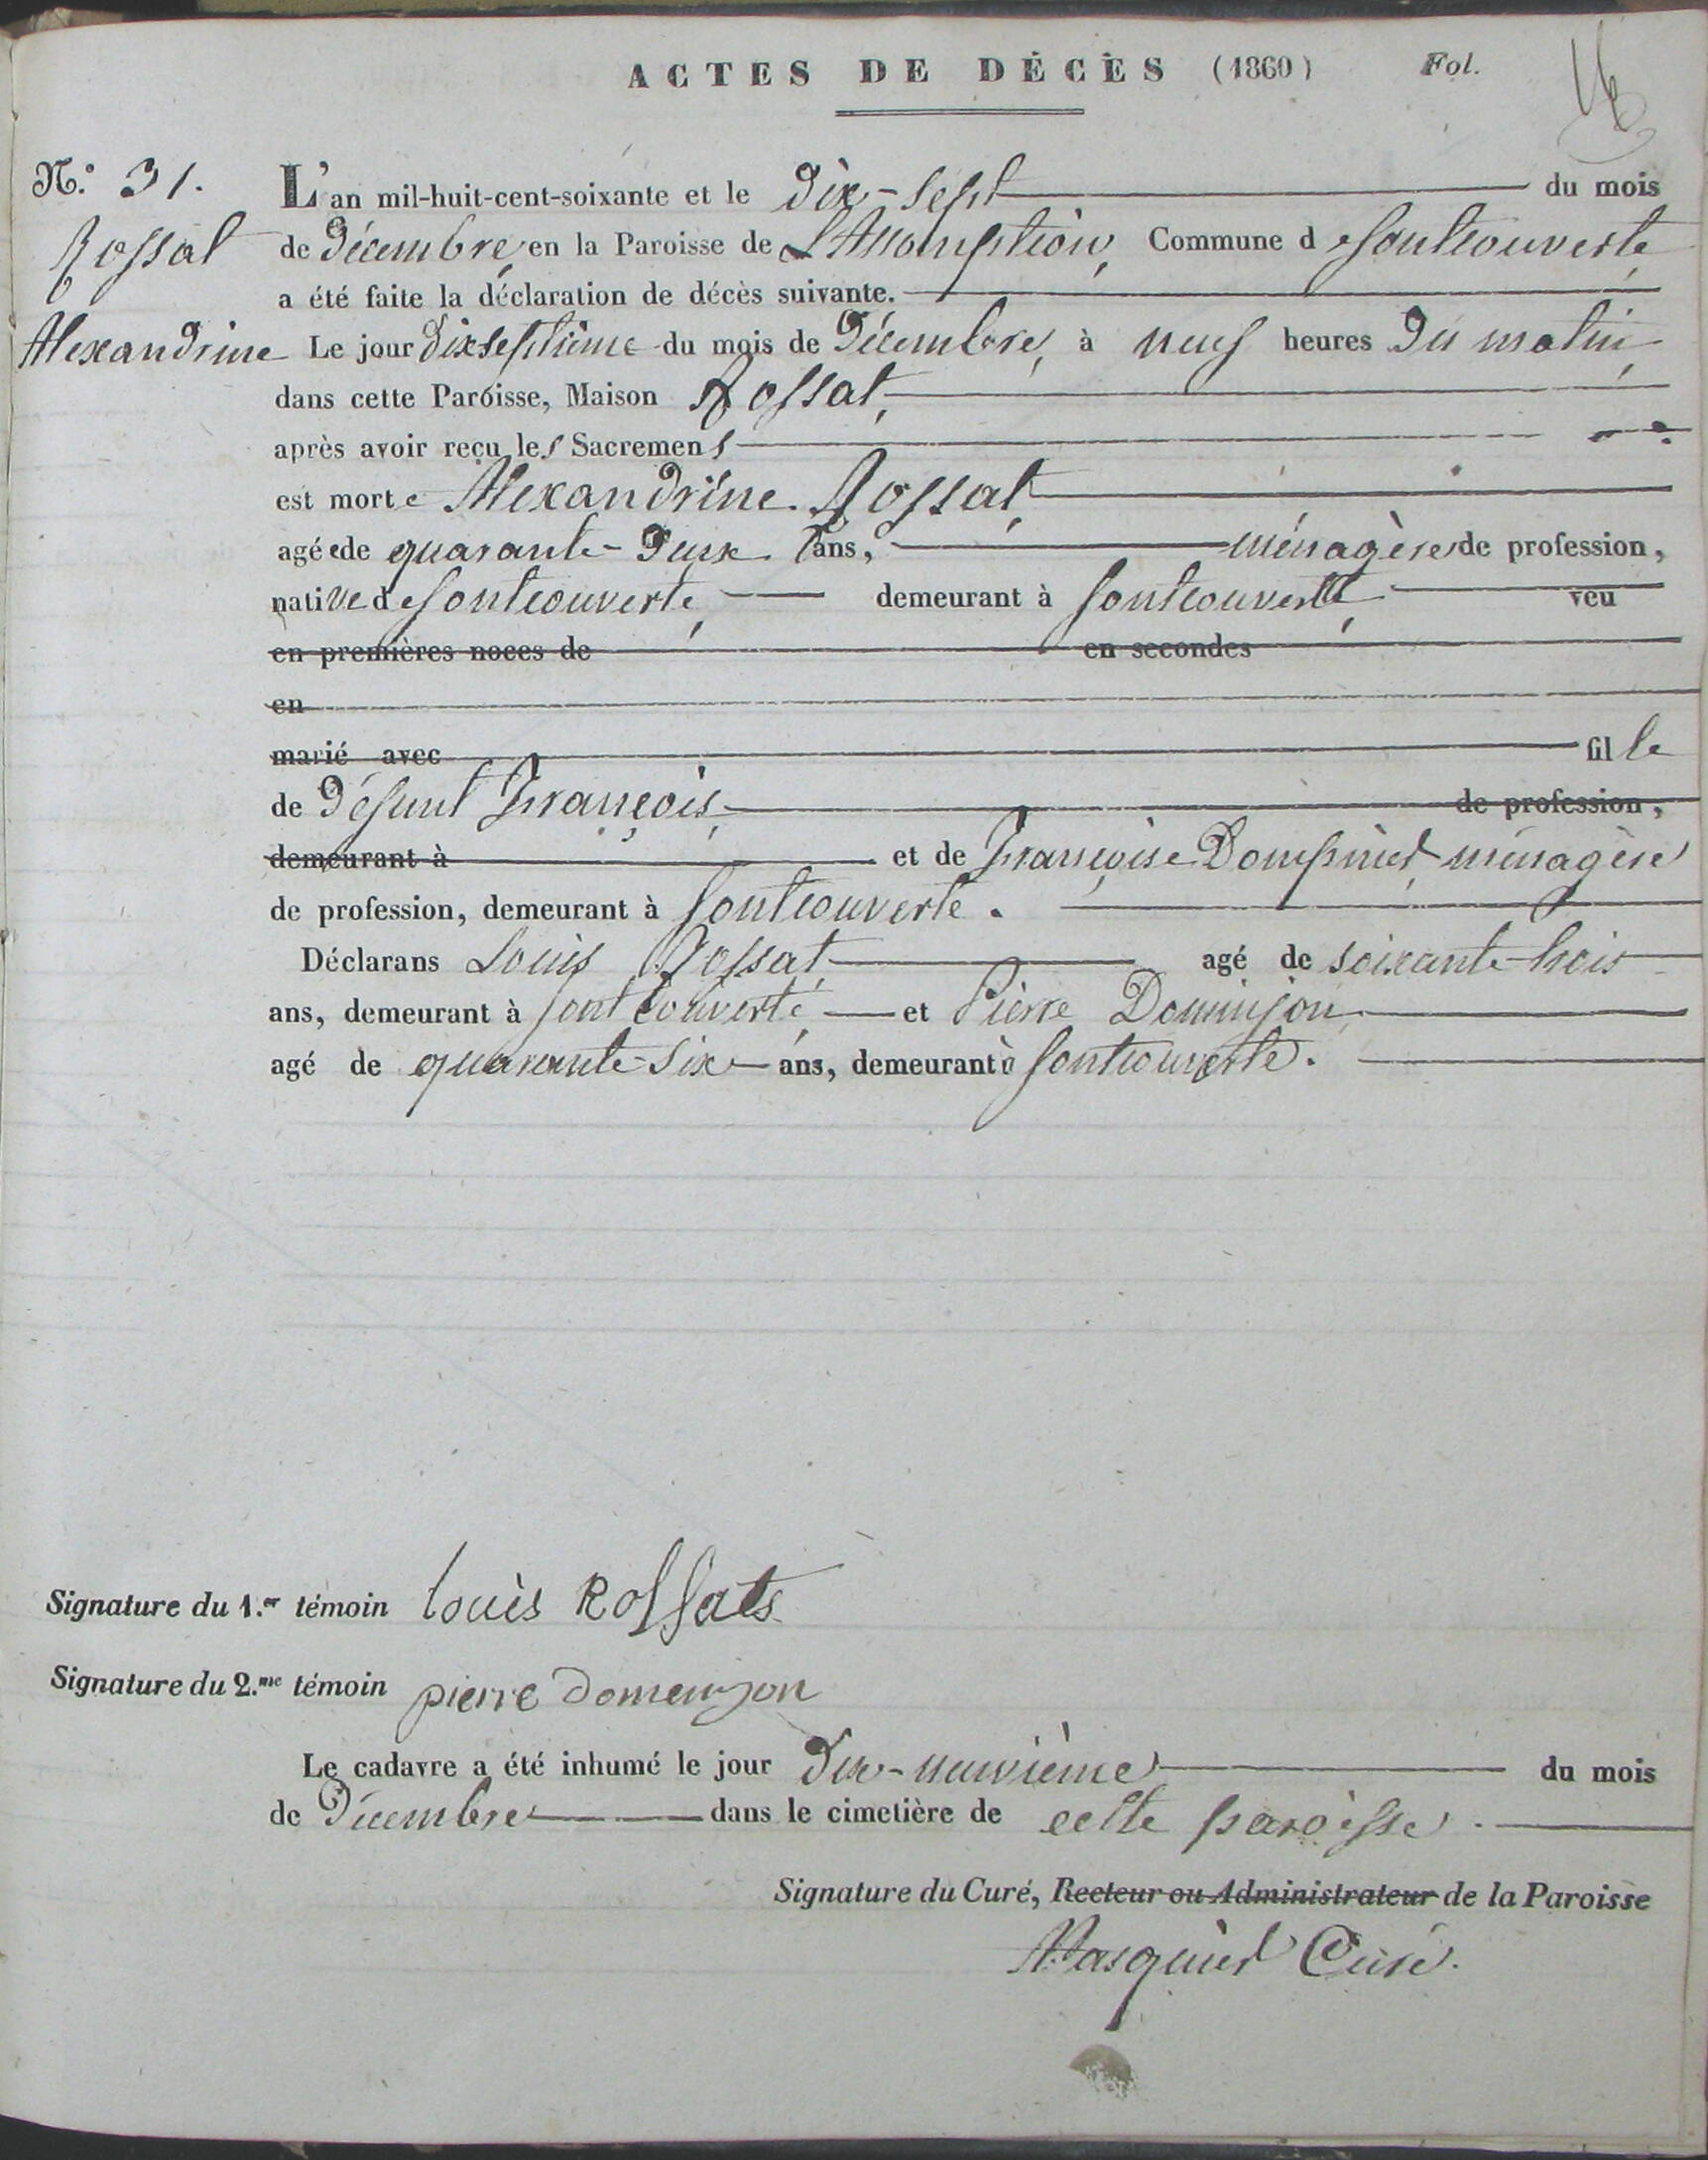 ACTES DE DÉCÈS (1860) Fol.
N.° 31.
L'an mil-huit-cent-soixante et le dix-sept du mois
Rossat
de Décembre, en la Paroisse de L'Assomption, Commune de Fontcouverte,
a été faite la déclaration de décès suivante.
Alexandrine
Le jour dixseptième du mois de Décembre, à neuf heures du matin,
dans cette Paroisse, Maison Rossat,
après avoir reçu les Sacremens
est morte Alexandrine Rossat,
agée de quarante-deux ans, ménagère de profession,
native de Fontcouverte, demeurant à Fontcouverte, veu
en premières noces de en secondes
en
marié avec fille
de Défunt François, de profession,
demeurant à et de Françoise Dompnier ménagère
de profession, demeurant à Fontcouverte.
Déclarans Louis Rossat, agé de soixante-trois
ans, demeurant à Fontcouverte, et Pierre Dominjon,
agé de quarante-six ans, demeurant à Fontcouverte.
Signature du 1.er témoin Louis Rossats
Signature du 2.me témoin pierre domenjon
Le cadavre a été inhumé le jour dix-neuvième du mois
de Décembre dans le cimetière de cette paroisse.
Signature du Curé, Recteur ou Administrateur de la Paroisse
Pasquier Curé.